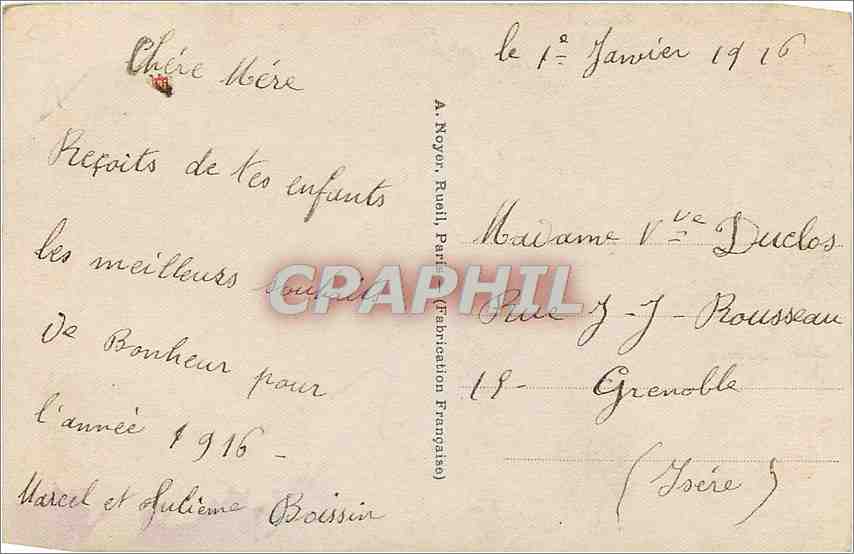 Chére Mére
Reçoits de tes enfants
les meilleurs souhaits
de Bonheur pour
l'année 1916 -
Marcel et Boissin
A. Noyer, Rueil, Paris - (Fabrication Française)
le 1e Janvier 1916
Madame Vve Duclos
Rue J-J- Rousseau
15- Grenoble
(Isére)
CPAPHIL